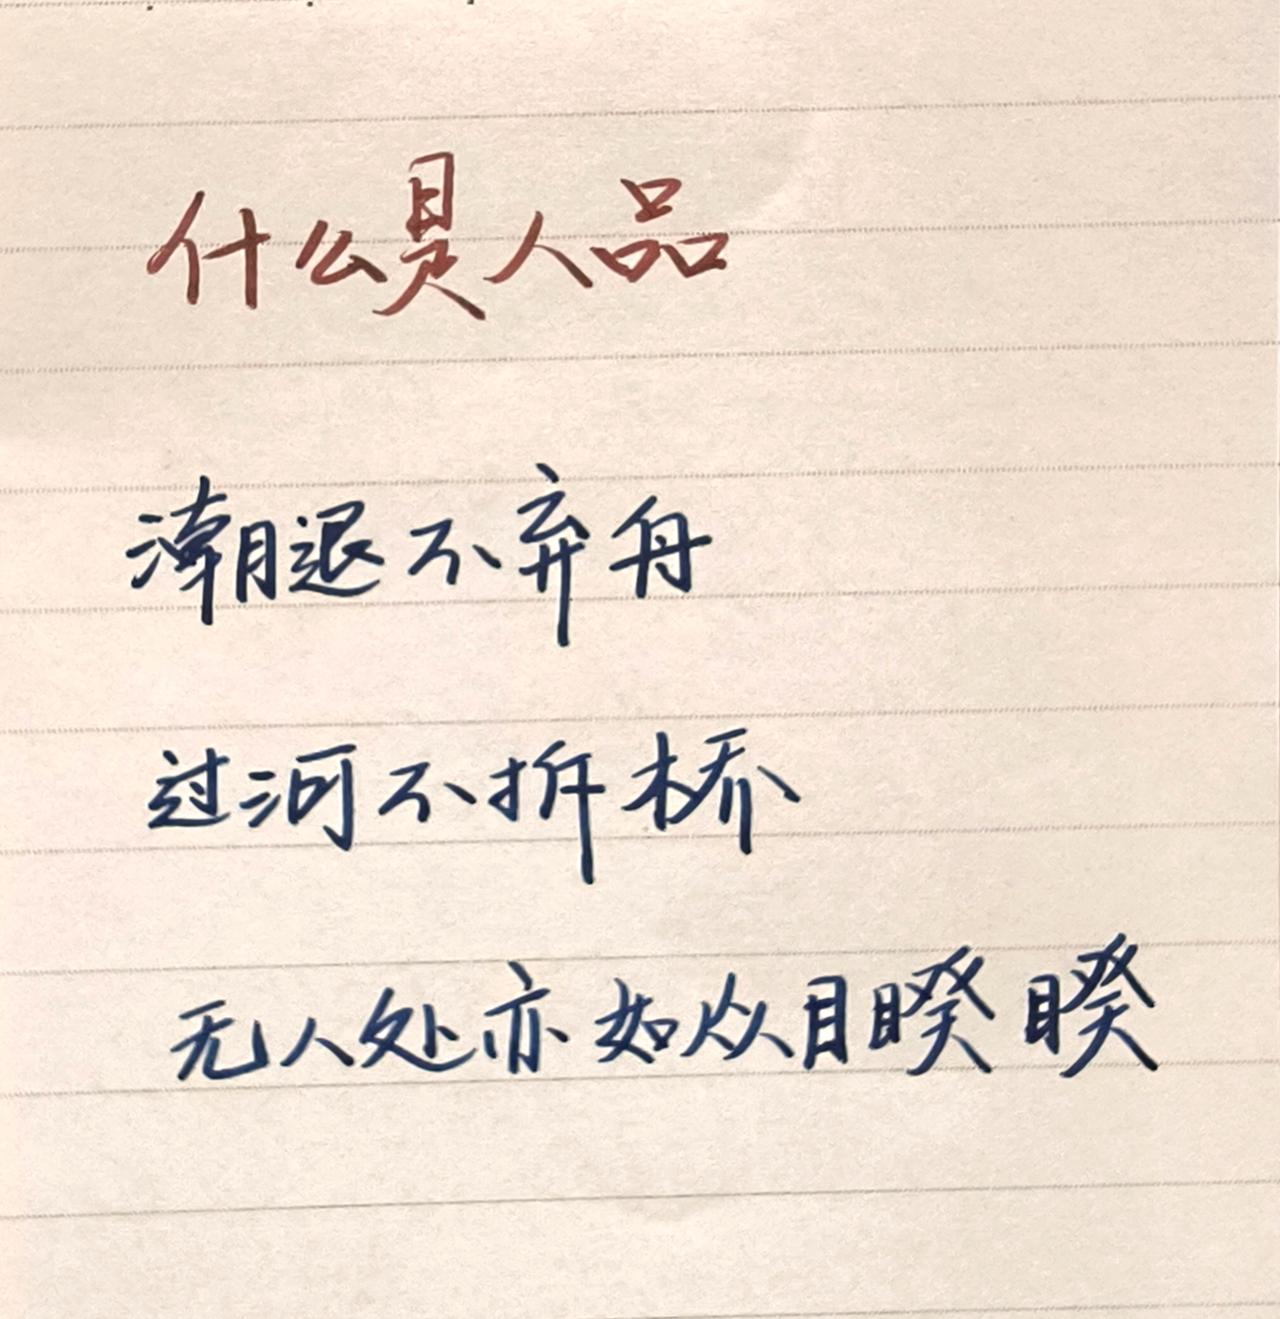 什么是人品
潮退不弃舟
过河不拆桥
无人处亦如众目睽睽